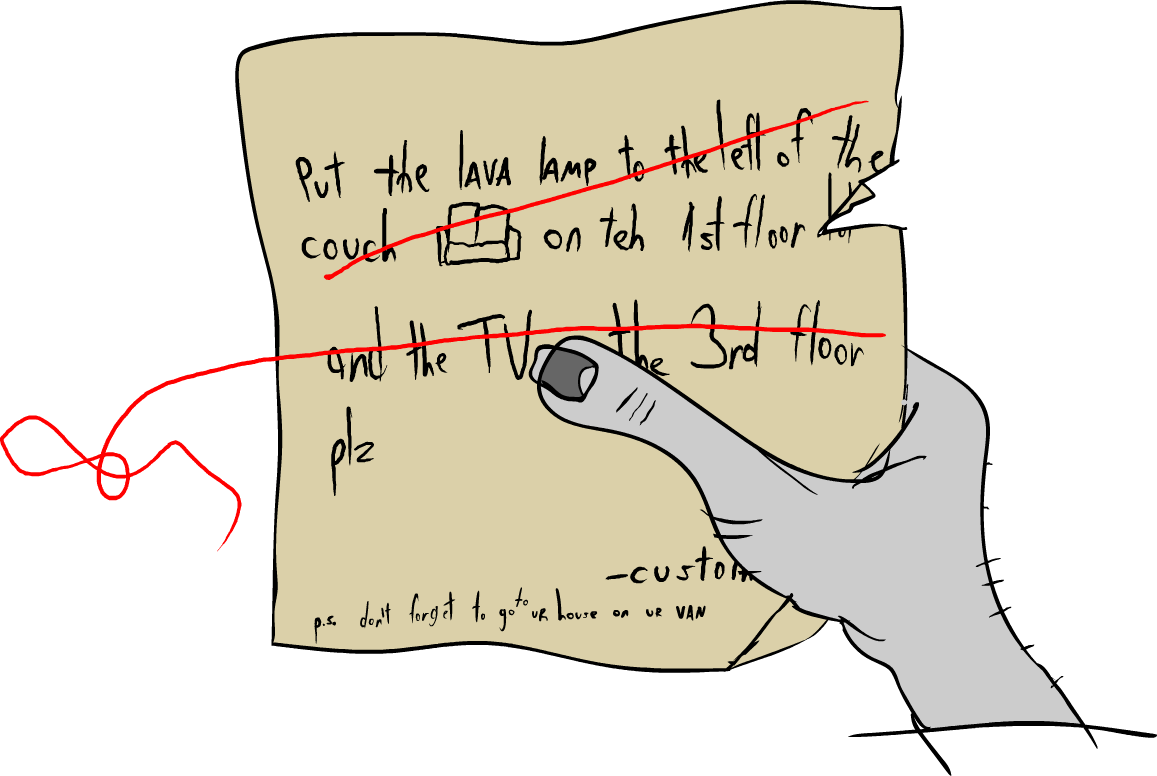 Put the LAVA LAMP to the left of the
couch on teh 1st floor
and the TV the 3rd floor
plz
-custom
p.s. don't forget to go to ur house on ur VAN